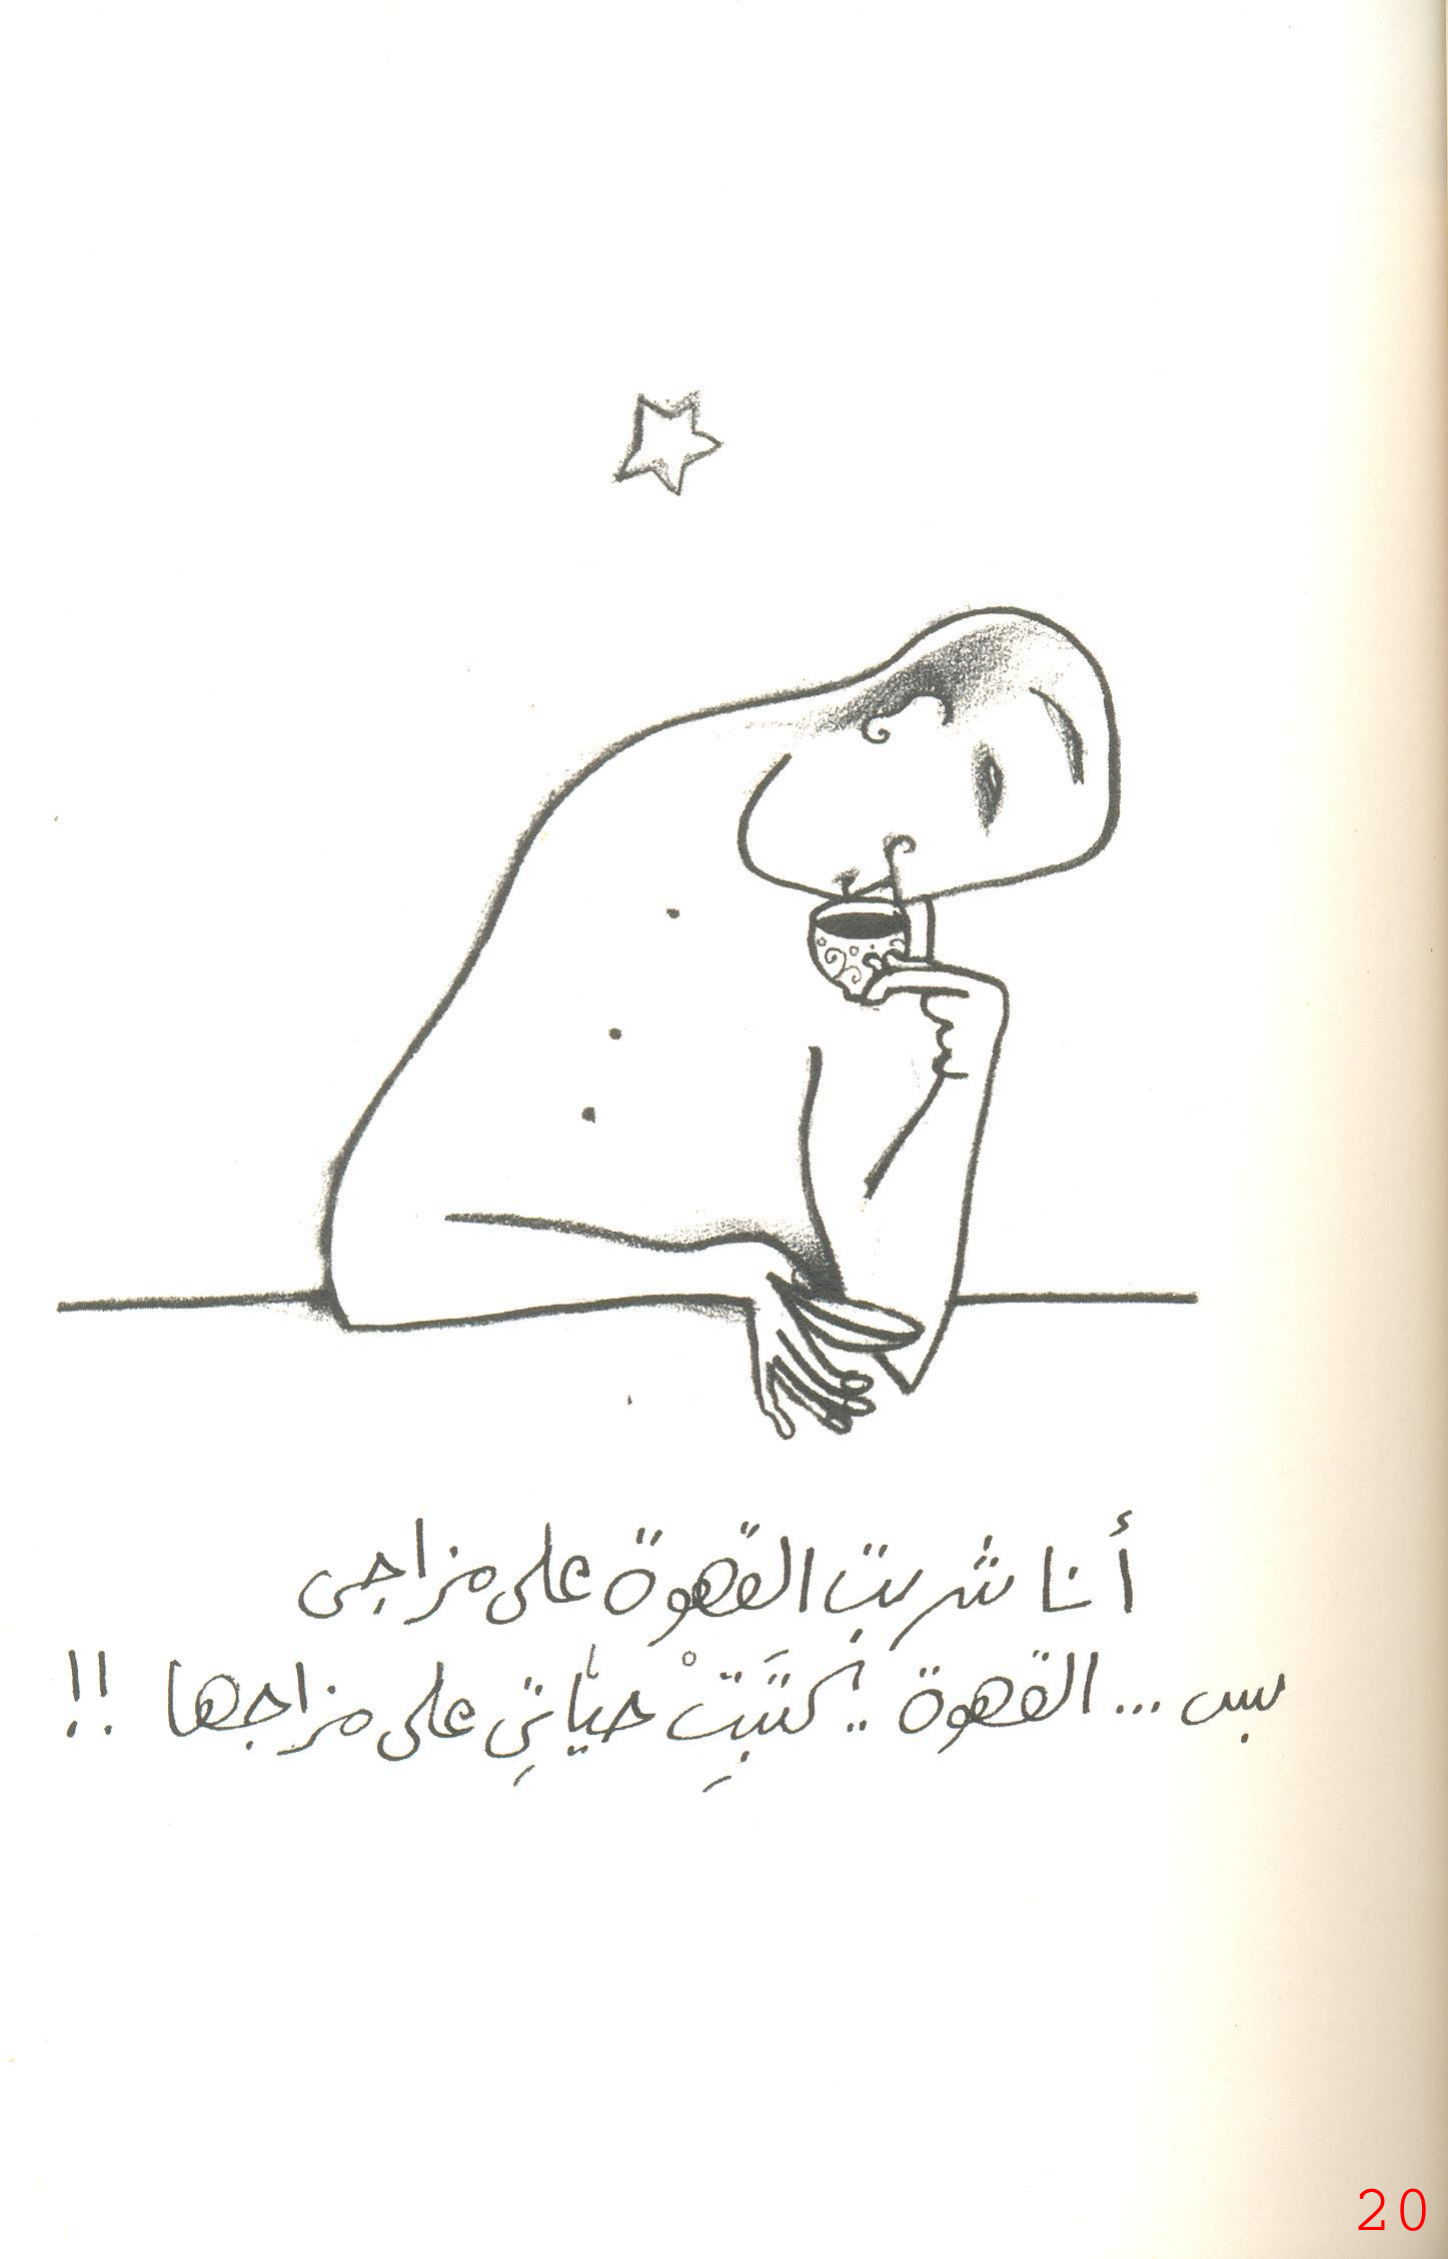 أنا شربت القهوة على مزاجى
بس ... القهوة .. كتَبِتْ حياتِي على مزاجها !!
20